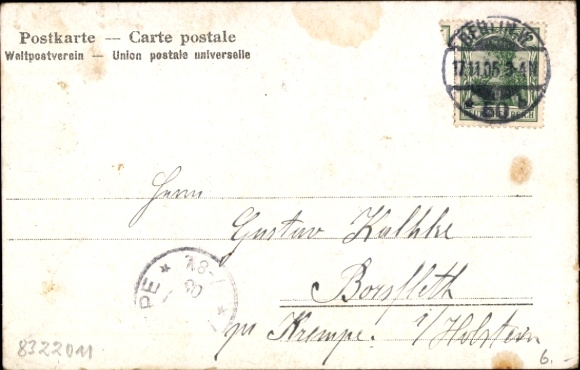 Postkarte — Carte postale
Weltpostverein — Union postale universelle
BERLIN.W.
17.11.05. 3-4 N
* 50 *
REICH
Herrn
Gustav Kahlke
Borsfleth
pr Krempe. i/Holstein
PE * *
8322011
6.